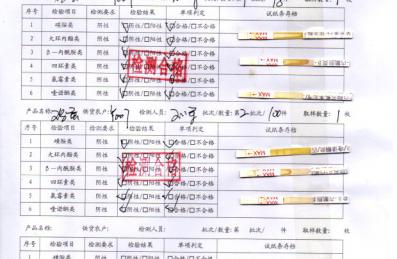 序号 检验项目 检测要求 检验结果 单项判定 试纸条存档
1 磺胺类 阴性 ☑阴性/□阳性 ☑合格/□不合格
2 大环内酯类 阴性 ☑阴性/□阳性 ☑合格/□不合格
3 β－内酰胺类 阴性 ☑阴性/□阳性 ☑合格/□不合格
4 四环素类 阴性 ☑阴性/□阳性 ☑合格/□不合格
5 氟霉素类 阴性 ☑阴性/□阳性 ☑合格/□不合格
6 喹诺酮类 阴性 ☑阴性/□阳性 ☑合格/□不合格
检测合格
产品名称: 供货农户: 1007 检测人员: 批次/数量: 第2批次/100件 取样数量: 1枚
序号 检验项目 检测要求 检验结果 单项判定 试纸条存档
1 磺胺类 阴性 ☑阴性/□阳性 ☑合格/□不合格
2 大环内酯类 阴性 ☑阴性/□阳性 ☑合格/□不合格
3 β－内酰胺类 阴性 ☑阴性/□阳性 ☑合格/□不合格
4 四环素类 阴性 ☑阴性/□阳性 ☑合格/□不合格
5 氟霉素类 阴性 ☑阴性/□阳性 ☑合格/□不合格
6 喹诺酮类 阴性 ☑阴性/□阳性 ☑合格/□不合格
检测合格
MAX
产品名称: 供货农户: 检测人员: 批次/数量: 第 批次/ 件 取样数量: 枚
序号 检验项目 检测要求 检验结果 单项判定 试纸条存档
1 磺胺类 阴性 □阴性/□阳性 □合格/□不合格